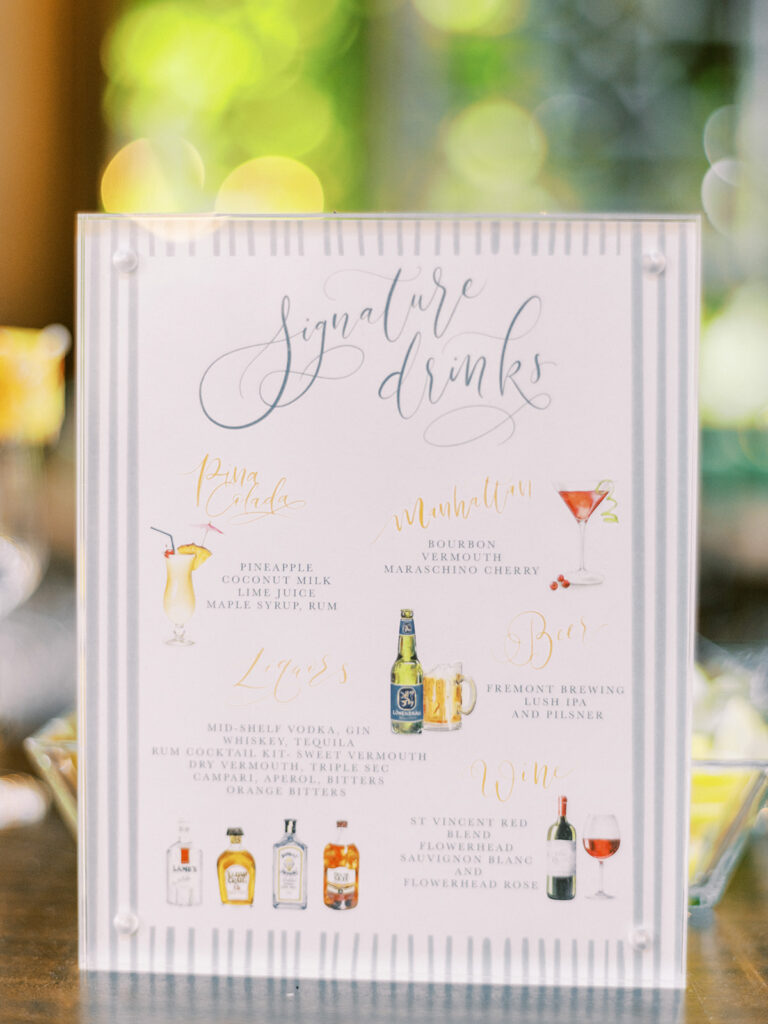 Signature
drinks
Pina
Colada
PINEAPPLE
COCONUT MILK
LIME JUICE
MAPLE SYRUP, RUM
Manhattan
BOURBON
VERMOUTH
MARASCHINO CHERRY
Liquors
MID-SHELF VODKA, GIN
WHISKEY, TEQUILA
RUM COCKTAIL KIT- SWEET VERMOUTH
DRY VERMOUTH, TRIPLE SEC
CAMPARI, APEROL, BITTERS
ORANGE BITTERS
Beer
FREMONT BREWING
LUSH IPA
AND PILSNER
LÖWENBRÄU
Wine
ST VINCENT RED
BLEND
FLOWERHEAD
SAUVIGNON BLANC
AND
FLOWERHEAD ROSE